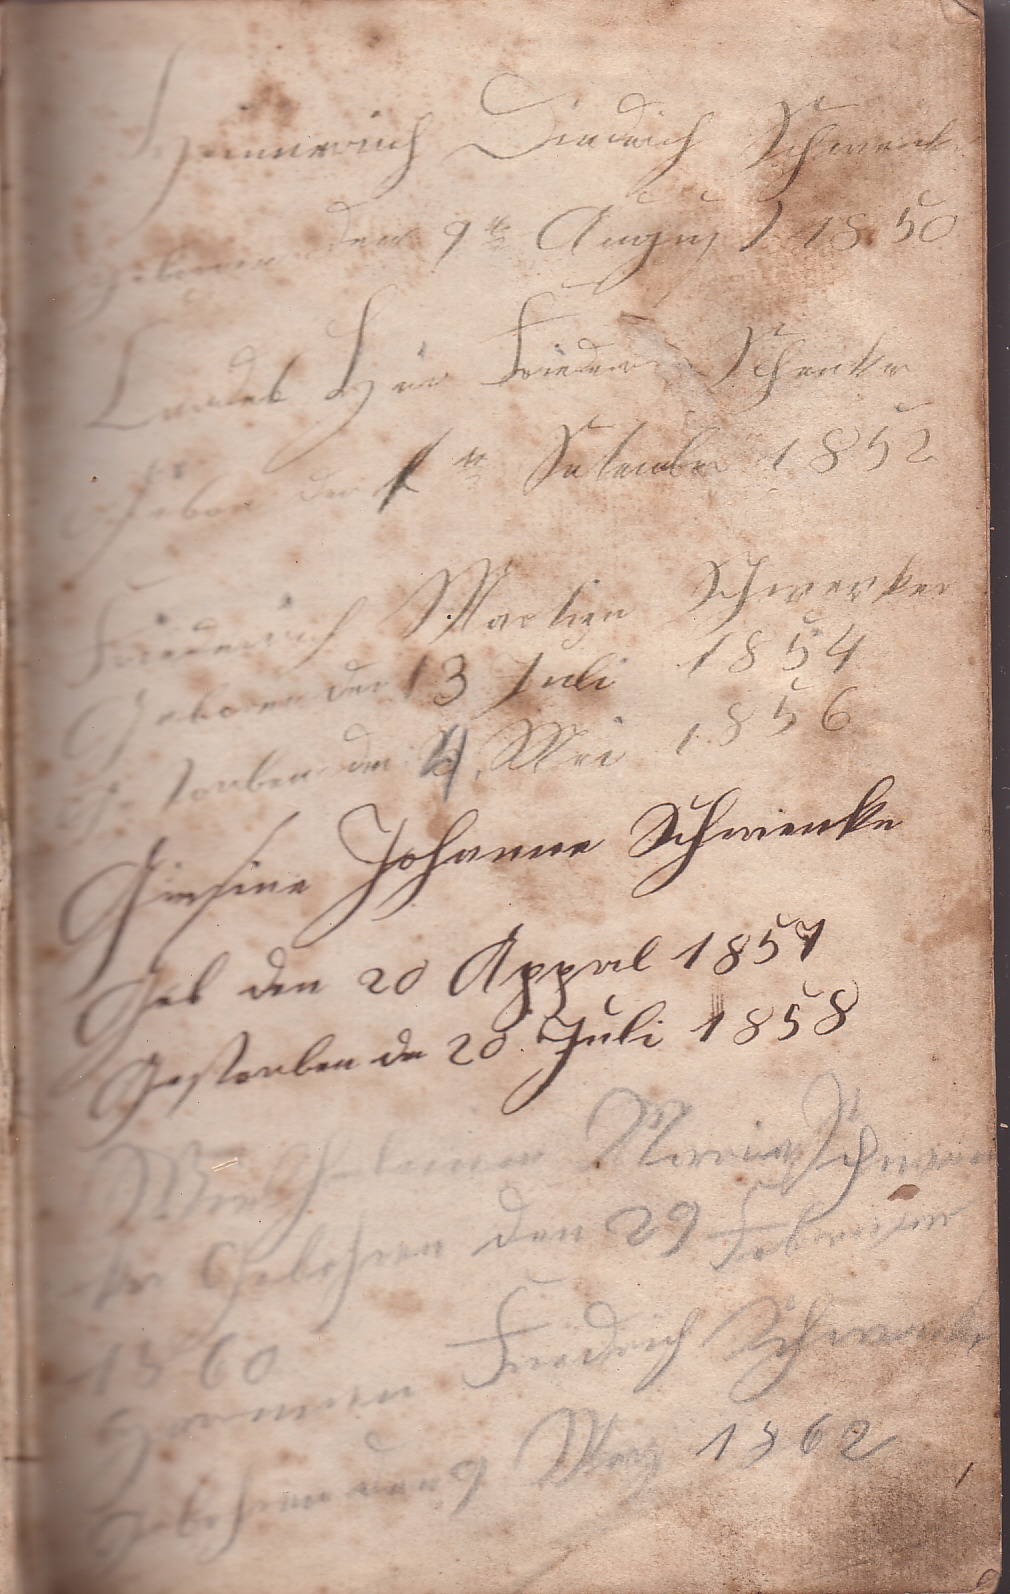 Hinnerich Diedrich Schwenke
geboren den 9te August 1850
Lardes Hin Friederi Schenke
Gebor den 1 te Setember 1852
Friederich Martien Schwenker
Geboren den 13 Juli 1854
Gestorben den 4. Mei 1856
Giesine Johanne Schwienke
Geb den 20 Appral 1857
Gestorben de 20 Juli 1858
Maria Schwen
ke Gebohren den 29 Februar
1860
Hermen Friedrich Schwenke
Gebohren den 9 Merz 1862